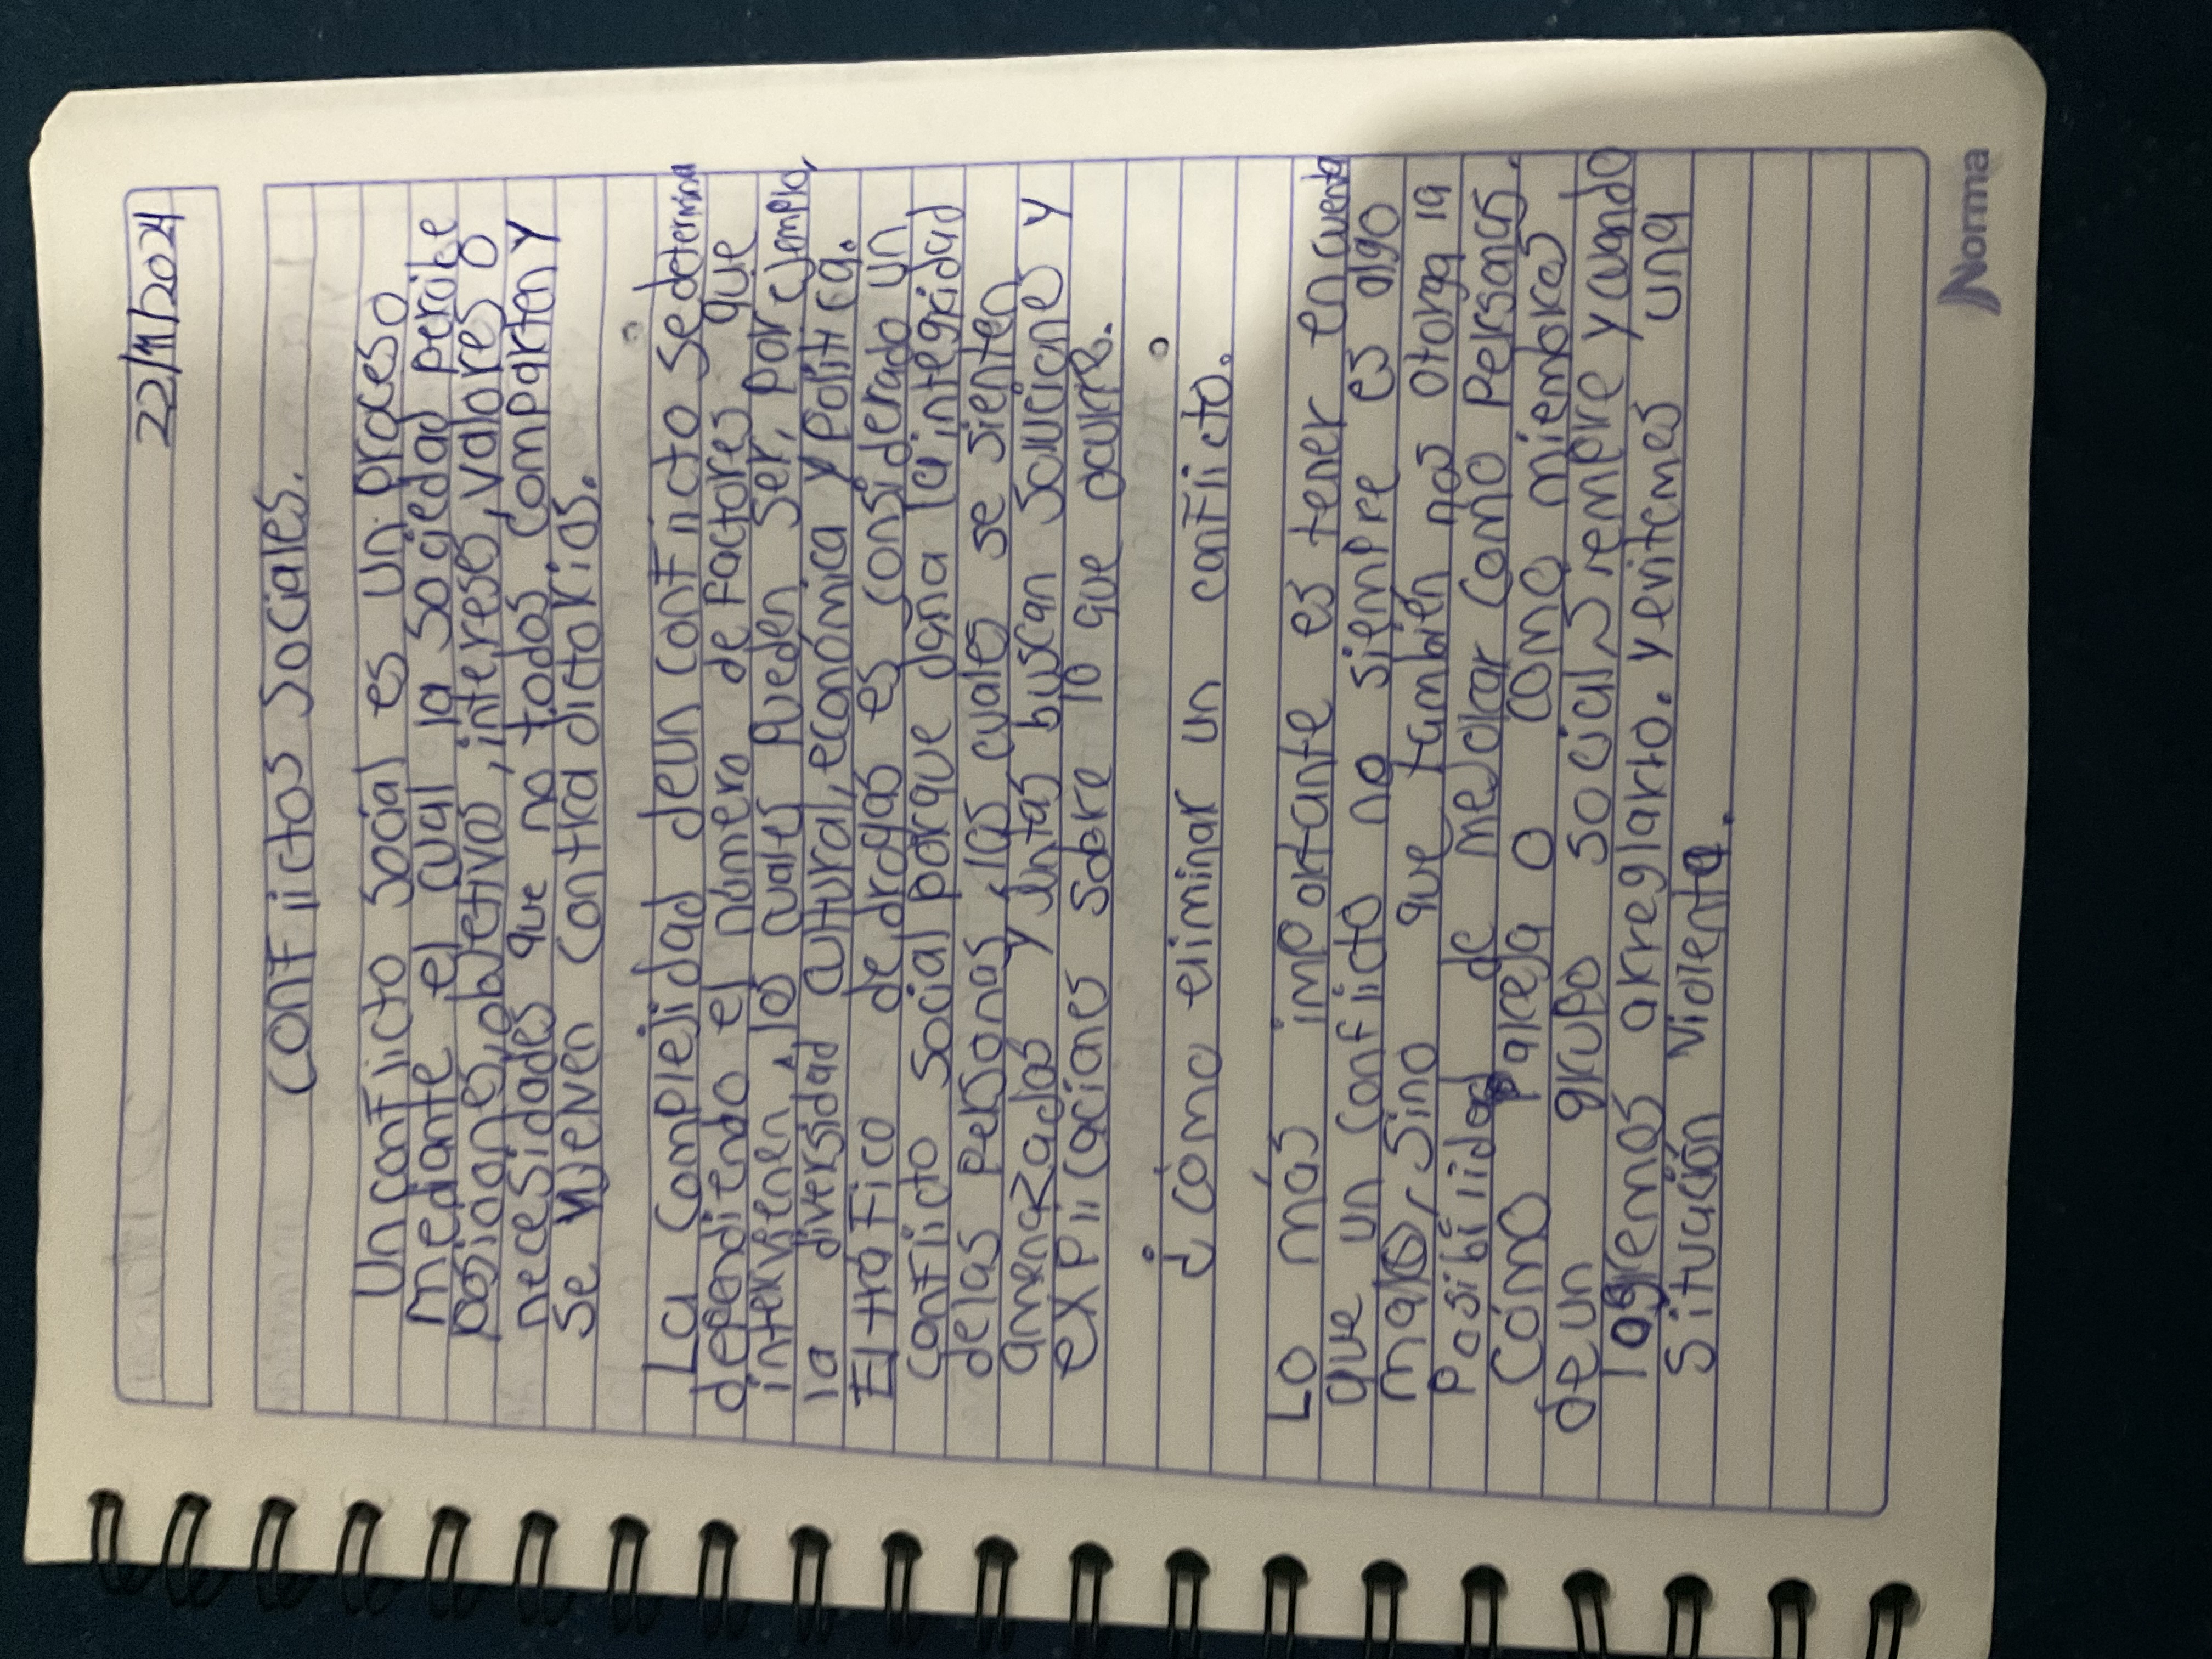 22/11/2024
Conflictos Sociales.
Un conflicto social es un proceso
mediante el cual la sociedad percibe
opiniones, objetivos, intereses, valores o
necesidades que no todos comparten y
se vuelven contradictorios.
La complejidad de un conflicto se determina
dependiendo el número de factores que
intervienen, los cuales pueden ser, por ejemplo,
la diversidad cultural, económica y política.
El tráfico de drogas es considerado un
conflicto social porque daña la integridad
de las personas, las cuales se sienten
amenazadas y juntas buscan soluciones y
explicaciones sobre lo que ocurre.
¿cómo eliminar un conflicto.
Lo más importante es tener en cuenta
que un conflicto no siempre es algo
malo, sino que también nos otorga la
posibilidad de mejorar como personas,
como pareja o como miembros
de un grupo social, siempre y cuando
logremos arreglarlo. y evitemos una
situación violenta.
Norma